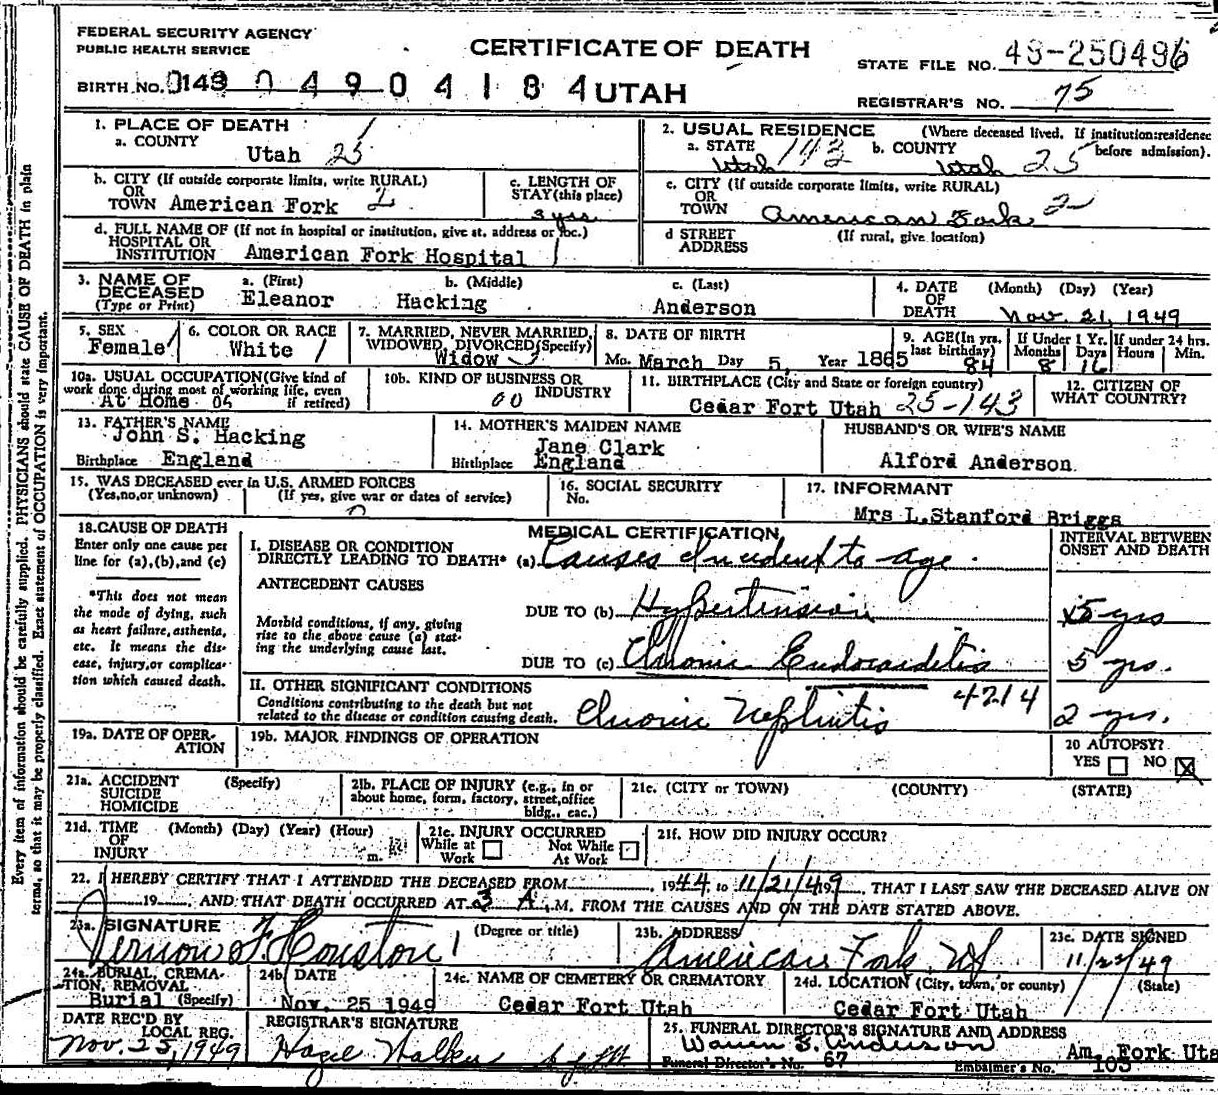 FEDERAL SECURITY AGENCY
PUBLIC HEALTH SERVICE
CERTIFICATE OF DEATH
STATE FILE NO. 49-250496
BIRTH NO. 0143 0 4 9 0 4 1 8 4 UTAH
REGISTRAR'S NO. 75
1. PLACE OF DEATH
a. COUNTY
Utah 25
2. USUAL RESIDENCE (Where deceased lived. If institution:residence before admission).
a. STATE Utah 143 b. COUNTY Utah 25
b. CITY (If outside corporate limits, write RURAL)
OR
TOWN American Fork 2
c. LENGTH OF
STAY(this place)
3 yrs
c. CITY (If outside corporate limits, write RURAL)
OR
TOWN American Fork 2
d. FULL NAME OF (If not in hospital or institution, give st. address or loc.)
HOSPITAL OR
INSTITUTION American Fork Hospital 1
d STREET (If rural, give location)
ADDRESS
3. NAME OF a. (First) b. (Middle) c. (Last)
DECEASED Eleanor Hacking Anderson
(Type or Print)
4. DATE (Month) (Day) (Year)
OF
DEATH Nov. 21, 1949
5. SEX
Female 1
6. COLOR OR RACE
White 1
7. MARRIED, NEVER MARRIED,
WIDOWED, DIVORCED(Specify)
Widow
8. DATE OF BIRTH
Mo. March Day 5, Year 1865
9. AGE(In yrs. last birthday) 84
If Under 1 Yr. Months 8 Days 16
If under 24 hrs. Hours Min.
10a. USUAL OCCUPATION(Give kind of
work done during most of working life, even
At Home if retired)
10b. KIND OF BUSINESS OR
INDUSTRY
00
11. BIRTHPLACE (City and State or foreign country)
Cedar Fort Utah 25-143
12. CITIZEN OF
WHAT COUNTRY?
13. FATHER'S NAME
John S. Hacking
Birthplace England
14. MOTHER'S MAIDEN NAME
Jane Clark
Birthplace England
HUSBAND'S OR WIFE'S NAME
Alford Anderson
15. WAS DECEASED ever in U.S. ARMED FORCES
(Yes,no,or unknown) (If yes, give war or dates of service)
16. SOCIAL SECURITY
No.
17. INFORMANT
Mrs L.Stanford Briggs
18.CAUSE OF DEATH
Enter only one cause per
line for (a),(b),and (c)
*This does not mean
the mode of dying, such
as heart failure, asthenia,
etc. It means the dis-
ease, injury,or complica-
tion which caused death.
MEDICAL CERTIFICATION
INTERVAL BETWEEN
ONSET AND DEATH
I. DISEASE OR CONDITION
DIRECTLY LEADING TO DEATH* (a) Causes Incident to age.
ANTECEDENT CAUSES
DUE TO (b) Hypertension 5 yrs
Morbid conditions, if any, giving
rise to the above cause (a) stat-
ing the underlying cause last.
DUE TO (c) Chronic Endocarditis 5 yrs.
II. OTHER SIGNIFICANT CONDITIONS 4214
Conditions contributing to the death but not
related to the disease or condition causing death. Chronic Nephritis 2 yrs.
19a. DATE OF OPER-
ATION
19b. MAJOR FINDINGS OF OPERATION
20 AUTOPSY?
YES NO X
21a. ACCIDENT (Specify)
SUICIDE
HOMICIDE
21b. PLACE OF INJURY (e.g., in or
about home, form, factory, street,office
bldg., eac.)
21c. (CITY or TOWN) (COUNTY) (STATE)
21d. TIME (Month) (Day) (Year) (Hour)
OF
INJURY m.
21e. INJURY OCCURRED
While at Work Not While At Work
21f. HOW DID INJURY OCCUR?
22. I HEREBY CERTIFY THAT I ATTENDED THE DECEASED FROM 1944, to 11/21/49, THAT I LAST SAW THE DECEASED ALIVE ON
19 , AND THAT DEATH OCCURRED AT 3 A.M. FROM THE CAUSES AND ON THE DATE STATED ABOVE.
23a. SIGNATURE (Degree or title)
Vernon F. Houston
23b. ADDRESS
American Fork, Ut
23c. DATE SIGNED
11/22/49
24a. BURIAL, CREMA-
TION, REMOVAL
Burial (Specify)
24b. DATE
Nov. 25 1949
24c. NAME OF CEMETERY OR CREMATORY
Cedar Fort Utah
24d. LOCATION (City, town, or county) (State)
Cedar Fort Utah
DATE REC'D BY
LOCAL REG.
Nov. 25, 1949
REGISTRAR'S SIGNATURE
Hazel Walker
25. FUNERAL DIRECTOR'S SIGNATURE AND ADDRESS
Warren B. Anderson Am. Fork Uta
Funeral Director's No. 67 Embalmer's No. 103
Every item of information should be carefully supplied. PHYSICIANS should state CAUSE OF DEATH in plain
terms, so that it may be properly classified. Exact statement of OCCUPATION is very important.